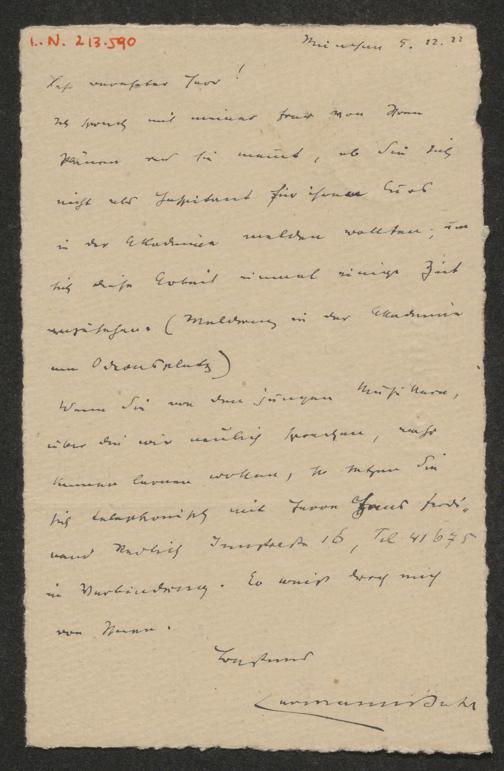 I. N. 213.590
München 5. 12. 22
Sehr verehrter Herr!
Ich sprach mit meiner Frau von Ihren
Plänen und sie meint, ob Sie sich
nicht als Hospitant für ihren Curs
in der Akademie melden wollten; um
sich diese Arbeit einmal einige Zeit
anzusehen. (Meldung in der Akademie
am Odeonsplatz)
Wenn Sie von den jungen Musikern,
über die wir neulich sprachen,
kennen lernen wollen, so setzen Sie
sich telephonisch mit Herrn Hans Ferdi-
nand Redlich 16, Tel 41675
in Verbindung. Er weiß durch mich
von Ihnen.